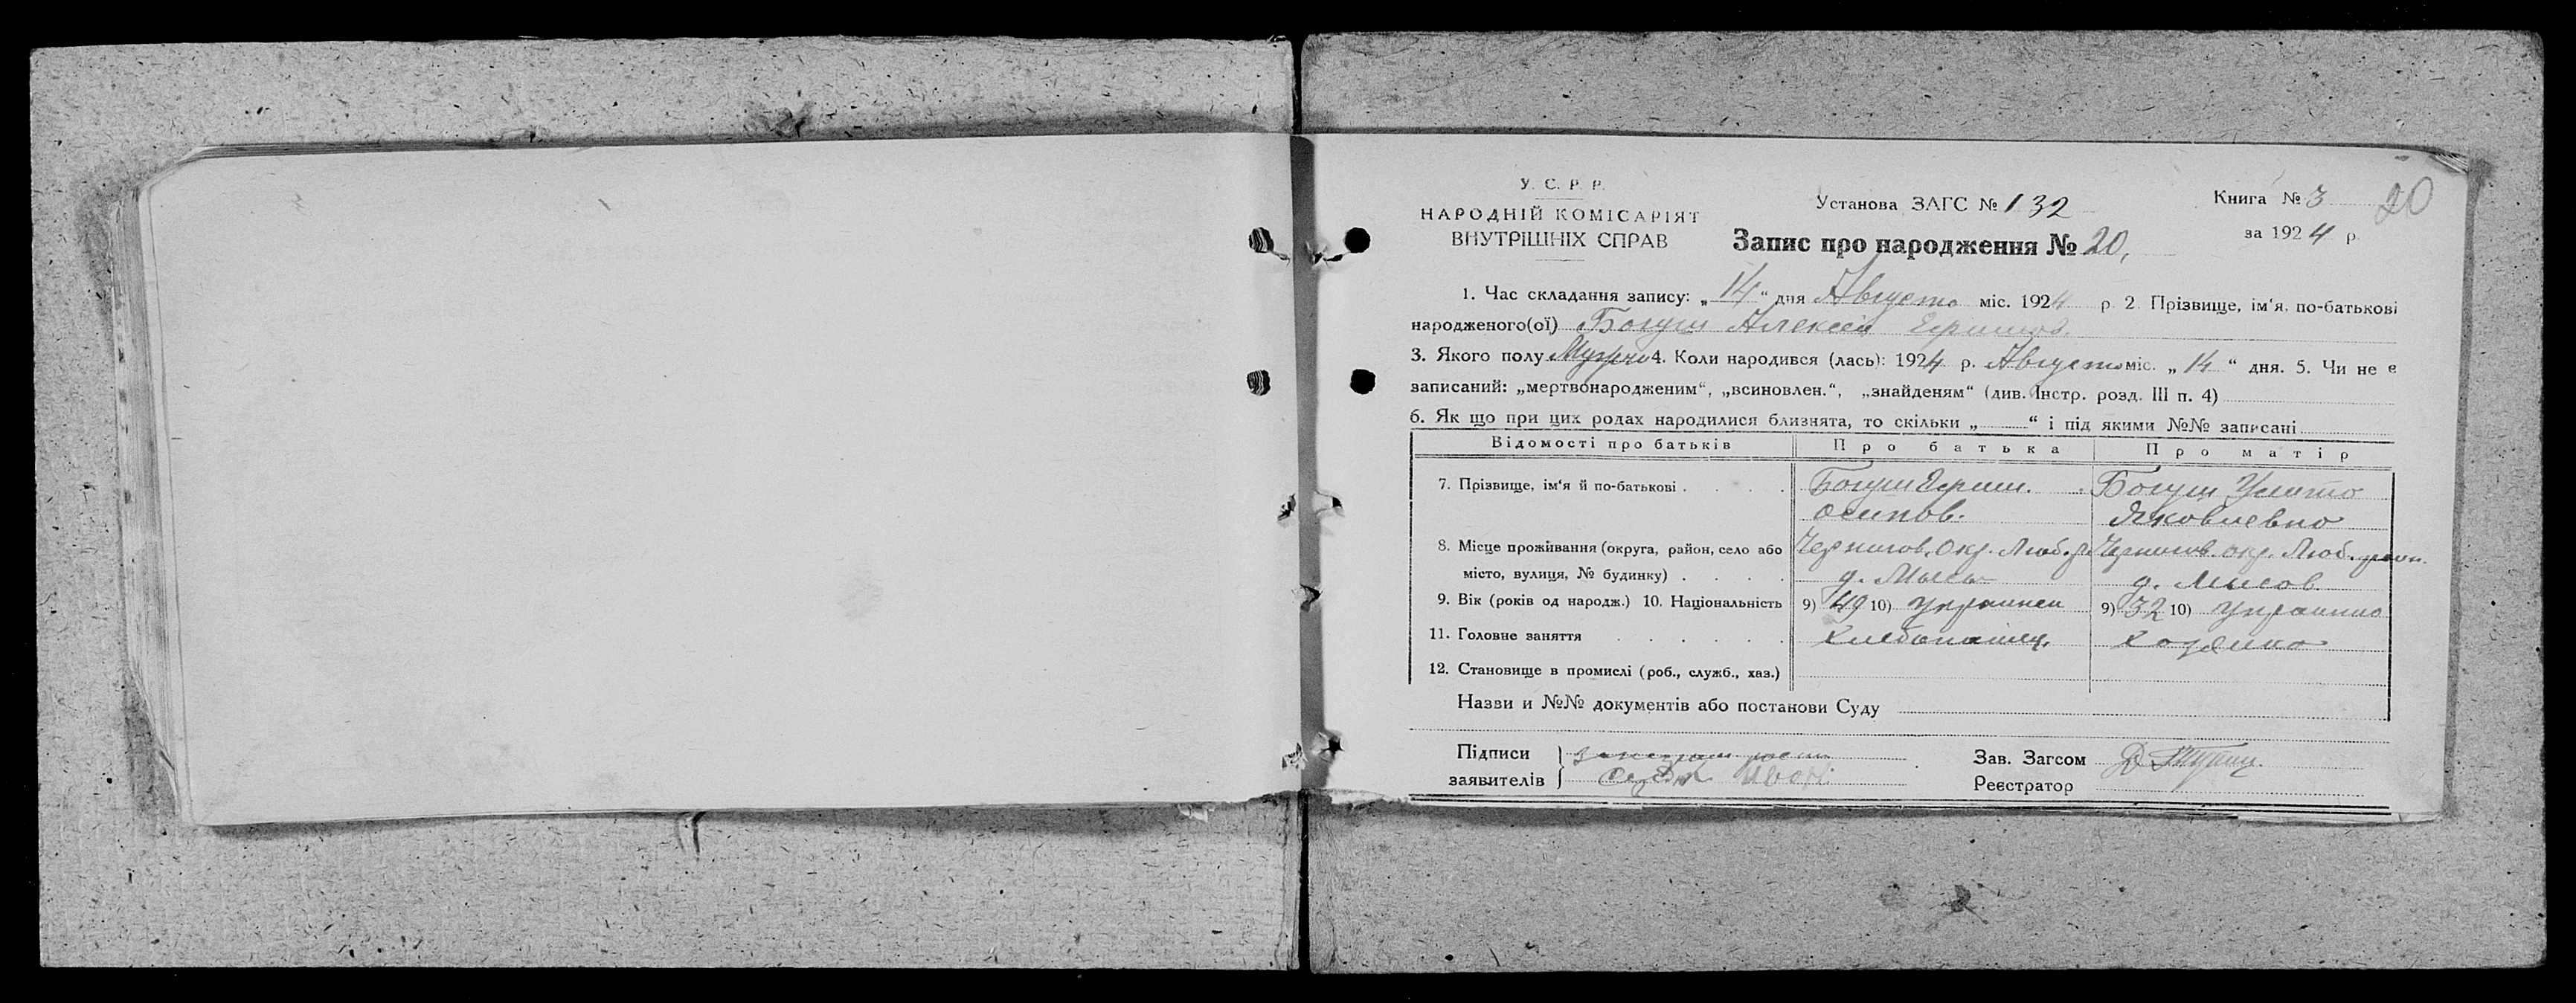 У. С. Р. Р.
НАРОДНІЙ КОМІСАРІЯТ
ВНУТРІШНІХ СПРАВ
Установа ЗАГС № 132
Книга № 3
20
Запис про народження № 20,
за 1924 р.
1. Час складання запису: „14“ дня Августа міс. 1924 р. 2. Прізвище, ім‘я, по-батькові
народженого(ої) Богуш Алексей Ефимов.
3. Якого полу 4. Коли народився (лась): 1924 р. Августа міс. „14“ дня. 5. Чи не є
записаний: „мертвонародженим“, „всиновлен.“, „знайденям“ (див. Інстр. розд. III п. 4)
6. Як що при цих родах народилися близнята, то скільки „ “ і під якими №№ записані
Відомості про батьків Про батька Про матір
7. Прізвище, ім‘я й по-батькові Богуш Ефим. Богуш
Осипов. Яковлевна
8. Місце проживання (округа, район, село або Чернигов. Окр. Люб. р. Чернигов. окр. Люб. район.
місто, вулиця, № будинку) д. Мысы д. Мысов
9. Вік (років од народж.) 10. Національність 9) 49 10) Украинец 9) 32 10) Украинка
11. Головне заняття Хлебопашец. Хозяйка
12. Становище в промислі (роб., служб., хаз.)
Назви и №№ документів або постанови Суду
Підписи
заявителів Иван
Зав. Загсом
Реєстратор